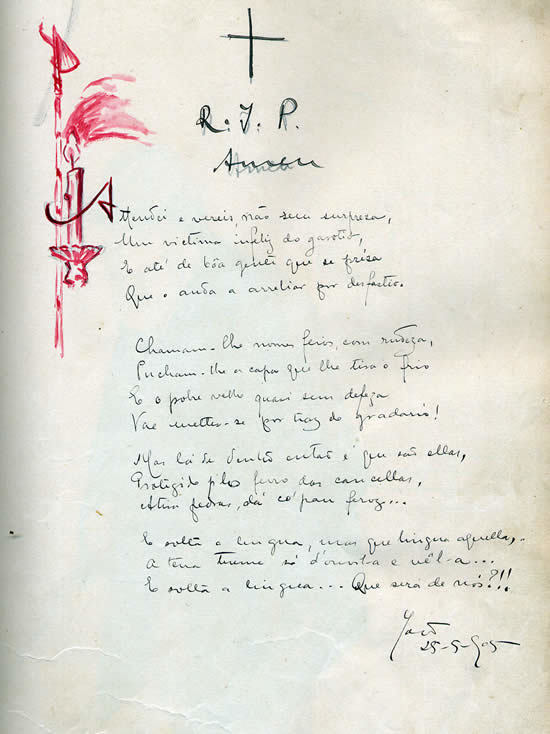 R. I. P.
Amen
Attendei e vereis não sem surpresa,
Um victima infeliz do garotio,
E até de bôa gente que se présa
Que o anda a arreliar por desfastio.
Chamam-lhe nomes feios, com rudeza,
Pucham-lhe a capa que lhe tira o frio
E o pobre velho quasi sem defeza
Vae metter-se por traz do gradario!
Mas lá de dentro então é que são ellas,
Protegido pelo ferro das cancellas,
Atira pedras, dá co'pau feroz...
E solta a lingua, mas que lingua aquella,
A terra treme só d'ouvil-a e vêl-a...
E solta a lingua... Que será de nós?!!
25-5-905